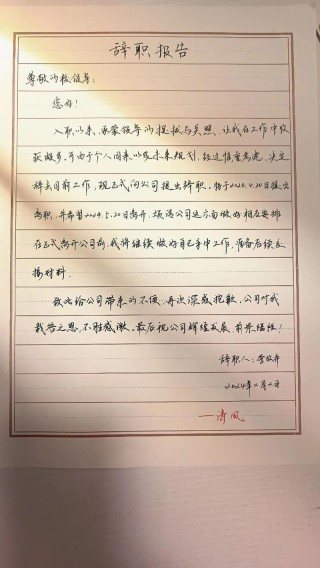 辞职报告
尊敬的校领导：
您好！
入职以来，承蒙领导的提拔与关照，让我在工作中收
获颇多，可由于个人因素以及未来规划，经过慎重考虑，决定
辞去目前工作，现正式向公司提出辞职，特于2024.4.20日提出
离职，并希望2024.5.20日离开，烦请公司这方面做好相应安排
在正式离开公司前，我将继续做好自己手中工作，准备后续交
接材料。
致此给公司带来的不便，再次深感抱歉，公司对我
栽培之恩，不胜感激，最后祝公司辉煌发展，前景绵绵！
辞职人：
2024年x月x日
一清风